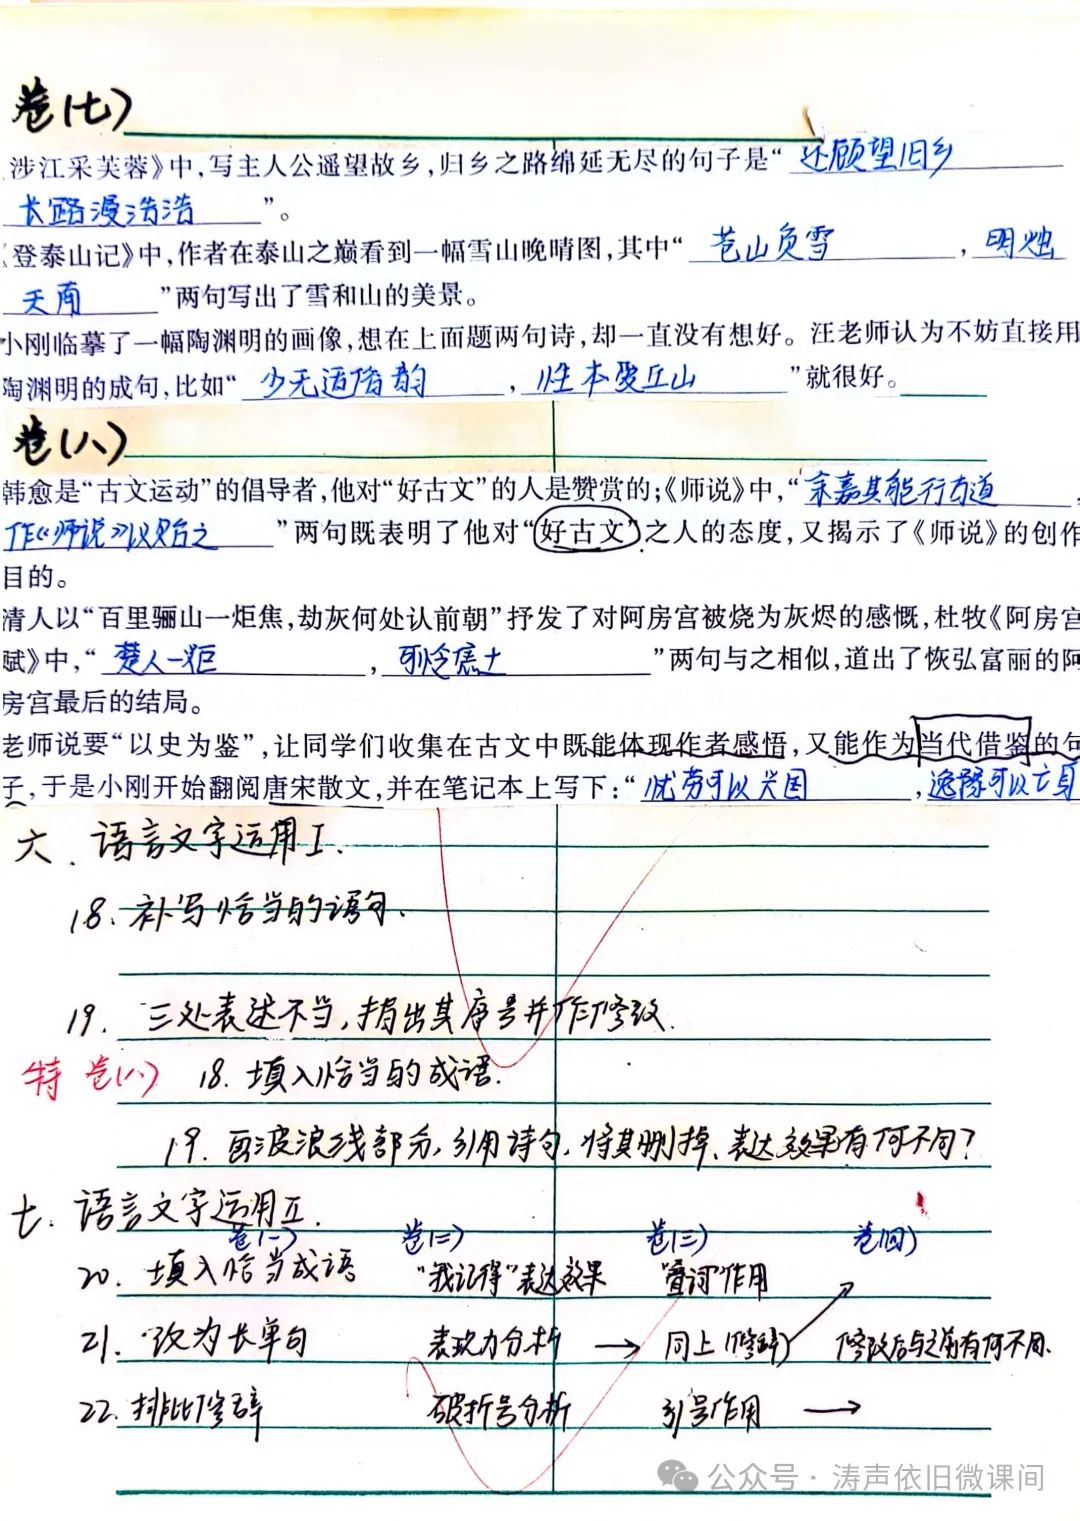 卷(七)
涉江采芙蓉》中,写主人公遥望故乡,归乡之路绵延无尽的句子是“ 还顾望旧乡
长路漫浩浩 ”。
《登泰山记》中,作者在泰山之巅看到一幅雪山晚晴图,其中“ 苍山负雪 , 明烛
天南 ”两句写出了雪和山的美景。
小刚临摹了一幅陶渊明的画像,想在上面题两句诗,却一直没有想好。汪老师认为不妨直接用
陶渊明的成句,比如“ 少无适俗韵 , 性本爱丘山 ”就很好。
卷(八)
韩愈是“古文运动”的倡导者,他对“好古文”的人是赞赏的;《师说》中,“ 余嘉其能行古道 ,
作《师说》以贻之 ”两句既表明了他对“好古文”之人的态度,又揭示了《师说》的创作
目的。
清人以“百里骊山一炬焦,劫灰何处认前朝”抒发了对阿房宫被烧为灰烬的感慨,杜牧《阿房宫
赋》中,“ 楚人一炬 , 可怜焦土 ”两句与之相似,道出了恢弘富丽的阿
房宫最后的结局。
老师说要“以史为鉴”,让同学们收集在古文中既能体现作者感悟,又能作为当代借鉴的句
子,于是小刚开始翻阅唐宋散文,并在笔记本上写下:“ 忧劳可以兴国 , 逸豫可以亡身
六、语言文字运用I.
18. 补写恰当的语句.
19. 三处表述不当,指出其序号并作修改.
特 卷(八) 18. 填入恰当的成语.
19. 画波浪线部分,引用诗句,将其删掉、表达效果有何不同?
七. 语言文字运用II.
卷(一) 卷(二) 卷(三) 卷(四)
20. 填入恰当成语 “我记得”表达效果 “叠词”作用
21. 改为长单句 表现力分析 → 同上(修辞) 修改后与之前有何不同.
22. 排比修辞 破折号分析 引号作用 →
公众号·涛声依旧微课间